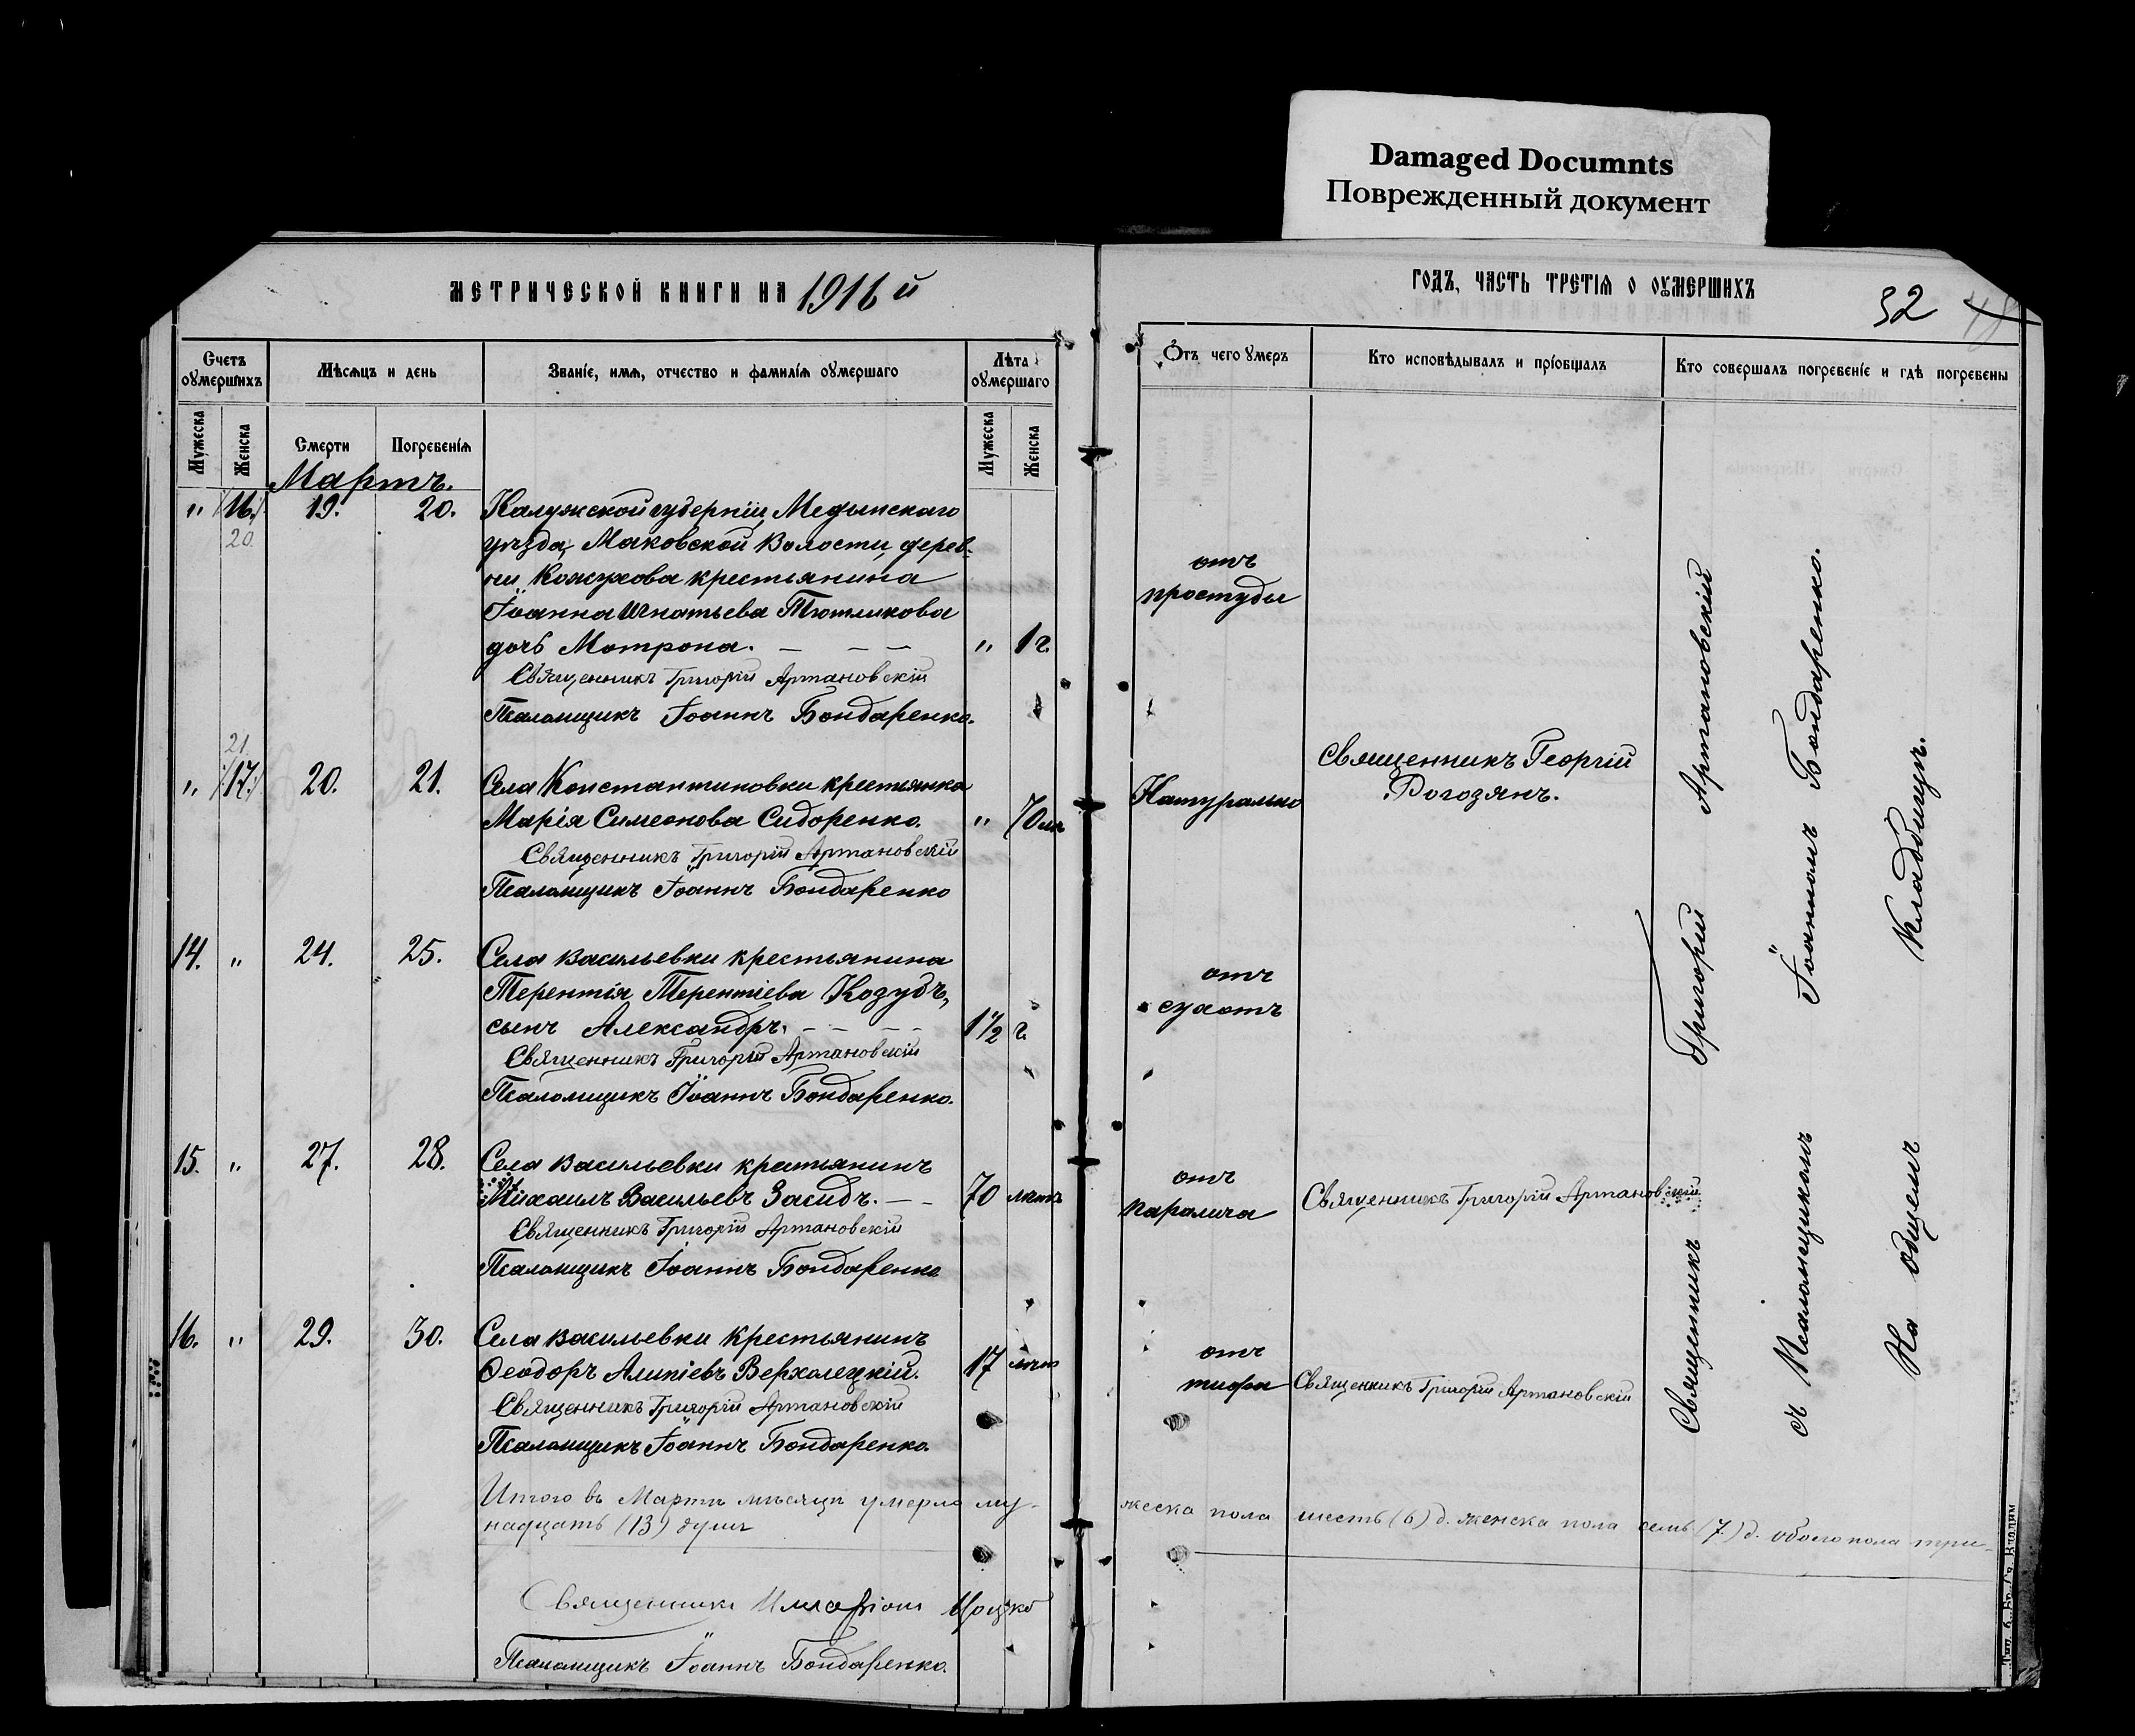 Damaged Documnts
Поврежденный документ
МЕТРИЧЕСКОЙ КНИГИ НА 1916 й
ГОДЪ, ЧАСТЬ ТРЕТІѦ О ОУМЕРШИХЪ
32
48
Счетъ оумершихъ
Мѣсѧцъ и день
Званіе, имѧ, отчество и фамиліѧ оумершаго
Лѣта оумершаго
Отъ чего умеръ
Кто исповѣдывалъ и пріобщалъ
Кто совершалъ погребеніе и гдѣ погребены
Мужеска
Женска
Смерти
Погребеніѧ
Мужеска
Женска
Мартъ.
" 16. 19. 20. Калужской губерніи, Медынскаго
20.
уѣзда, Маковской волости, дерев-
ни Кожухова крестьянина
Іоанна Игнатьева Тютликова
дочь Мотрона. — — — " 1 г.
отъ
простуды
Священникъ Григорій Артановскій
Псаломщикъ Іоаннъ Бондаренко.
21.
" 17. 20. 21. Села Константиновки крестьянка
Марія Симеонова Сидоренко. " 70 лѣ
Натурально
Священникъ Георгій
Рогозянъ.
Священникъ Григорій Артановскій
Псаломщикъ Іоаннъ Бондаренко
14. " 24. 25. Села Васильевки крестьянина
Терентія Терентіева Козубъ,
сынъ Александръ. — — — 1½ г.
отъ
сухотъ
Священникъ Григорій Артановскій
Псаломщикъ Іоаннъ Бондаренко.
15. " 27. 28. Села Васильевки крестьянинъ
Михаилъ Васильевъ Засидъ. — — 70 лѣтъ
отъ
паралича
Священникъ Григорій Артановскій
Священникъ Григорій Артановскій
Псаломщикъ Іоаннъ Бондаренко
16. " 29. 30. Села Васильевки крестьянинъ
Ѳеодоръ Алипіевъ Верхолецкій. 17 лѣтъ
отъ
тифа
Священникъ Григорій Артановскій
Священникъ Григорій Артановскій
Псаломщикъ Іоаннъ Бондаренко.
Священникъ Григорій Артановскій
съ Псаломщикомъ Іоанномъ Бондаренко.
На общемъ кладбищѣ.
Итого въ Мартѣ мѣсяцѣ умерло му-
жеска пола шесть (6) д. женска пола семь (7) д. обоего пола три-
надцать (13) душъ
Священникъ Иларіонъ
Псаломщикъ Іоаннъ Бондаренко.